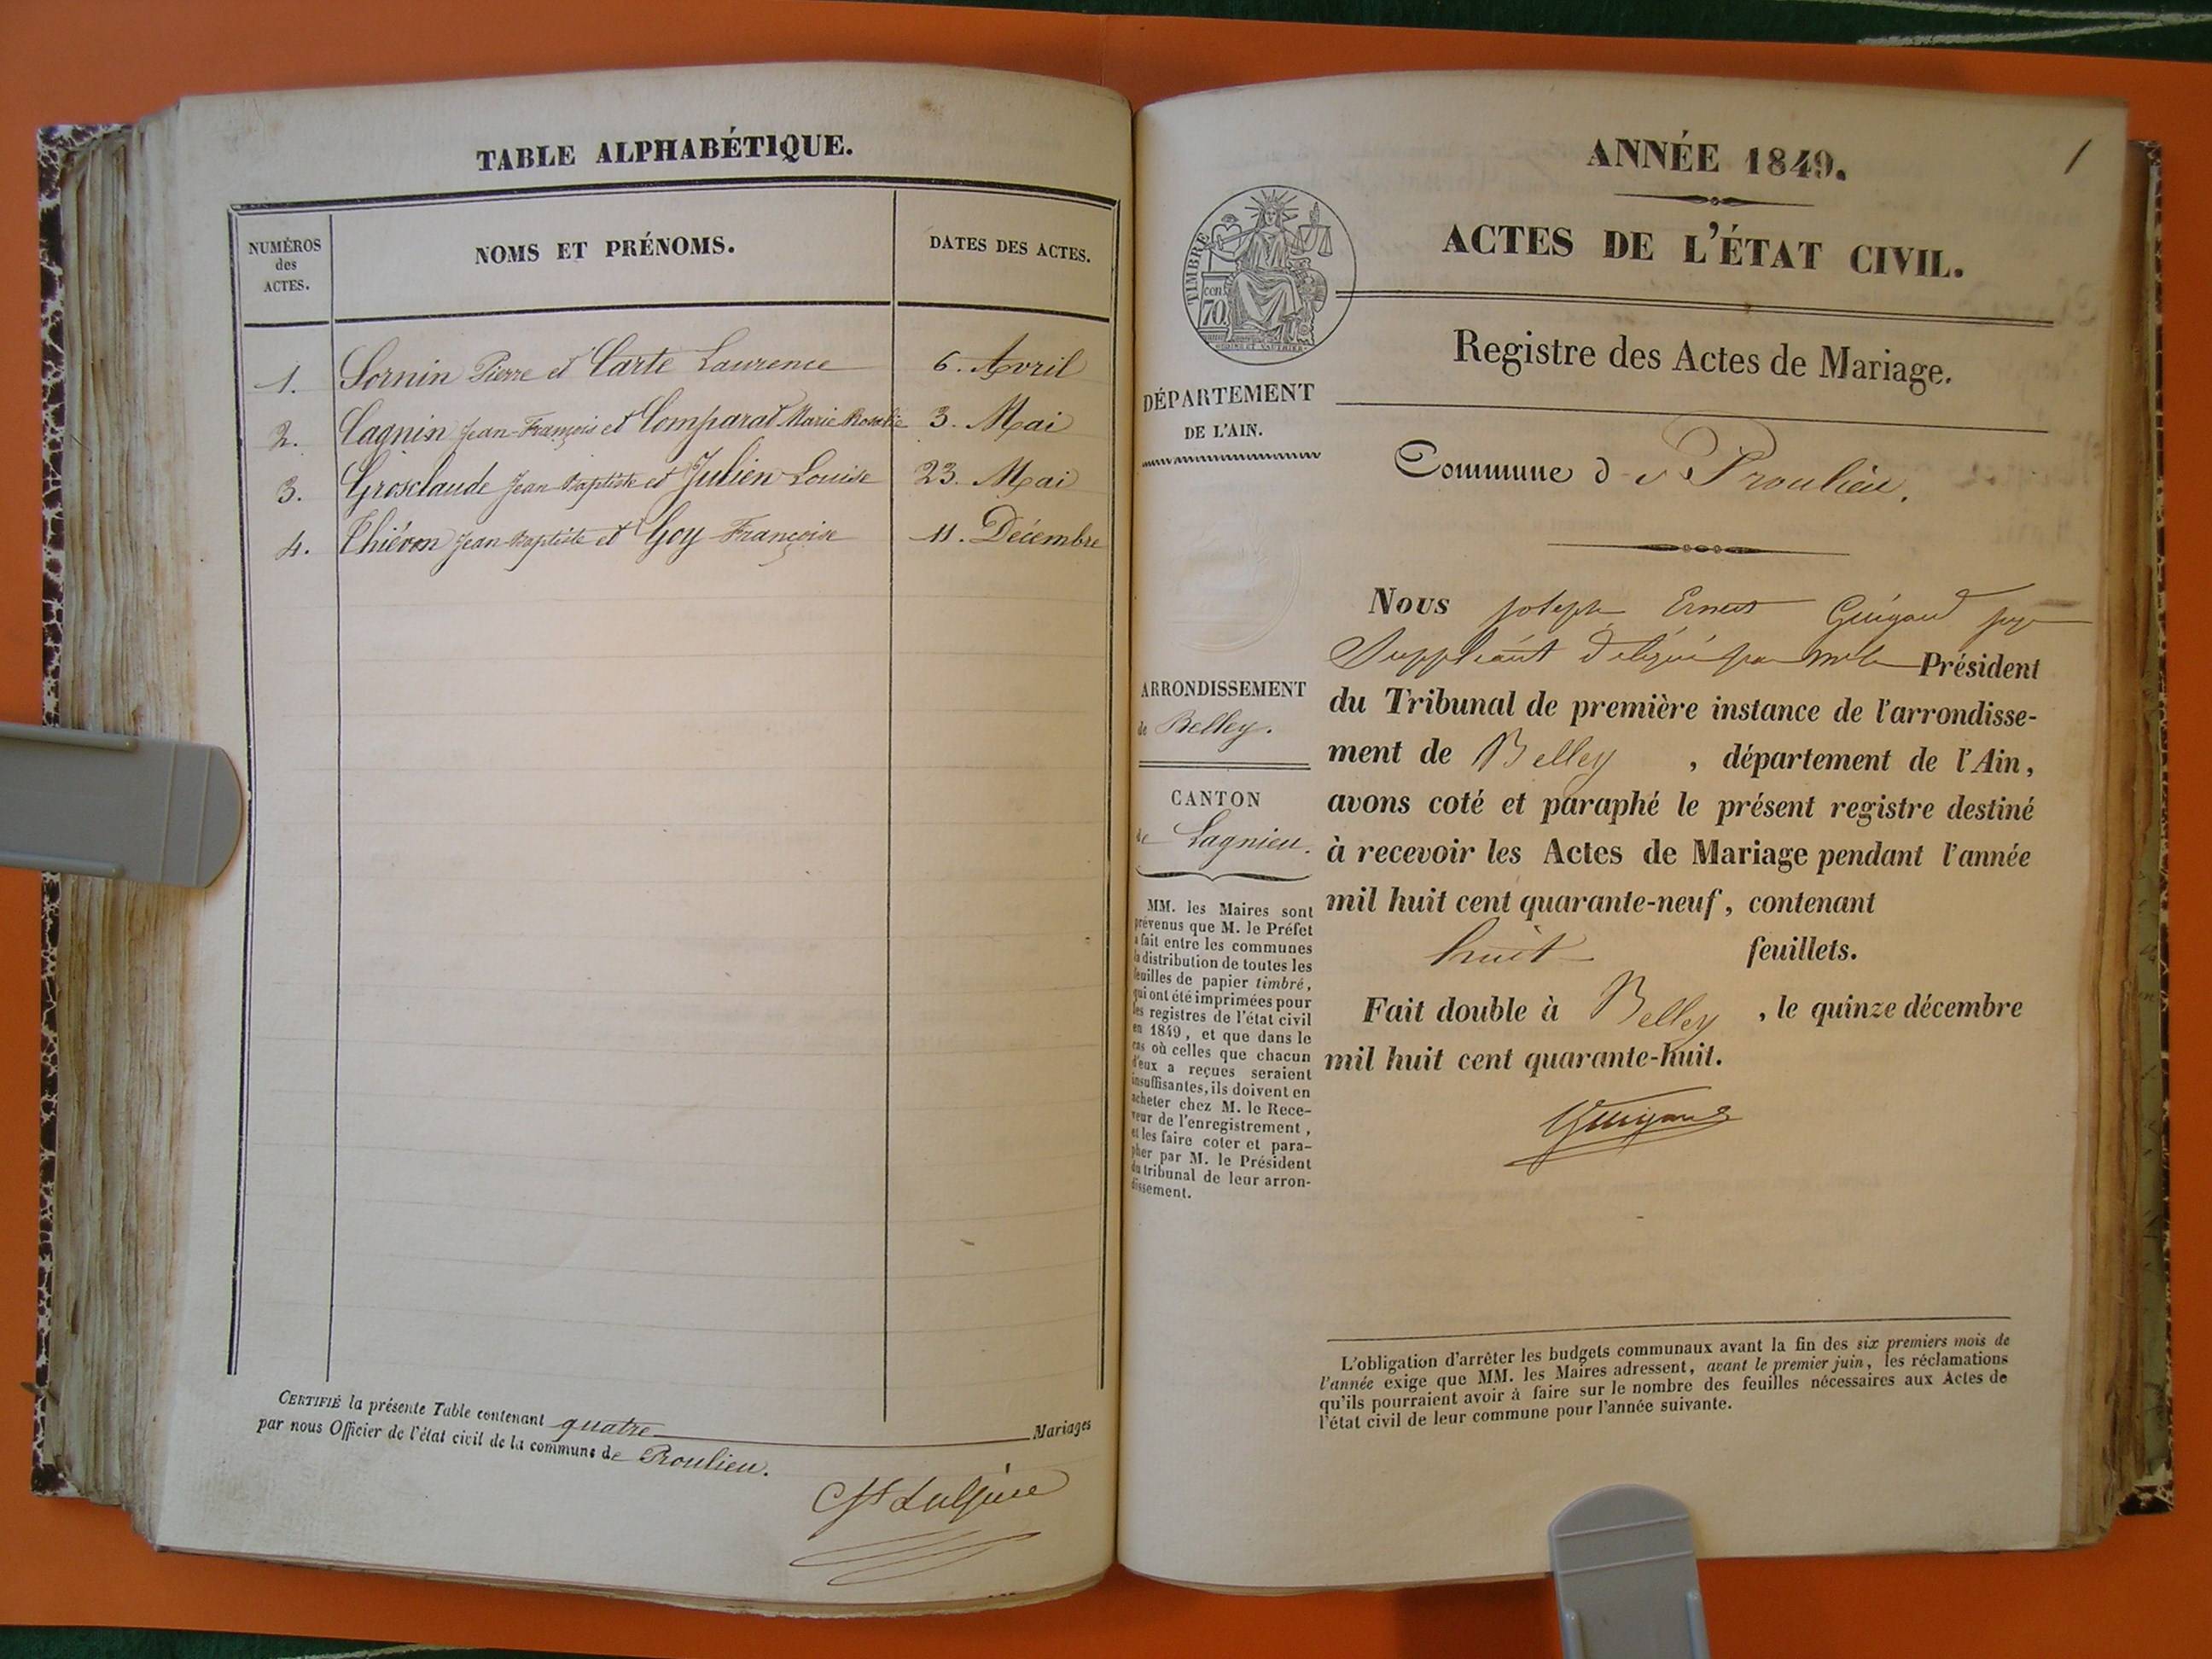 TABLE ALPHABÉTIQUE.
NUMÉROS des ACTES.
NOMS ET PRÉNOMS.
DATES DES ACTES.
1. Sornin Pierre et Carte Laurence 6. Avril
2. Cagnin Jean-François et Comparat Marie Rosalie 3. Mai
3. Grosclaude Jean-Baptiste et Julien Louise 23. Mai
4. Thiévon Jean-Baptiste et Goy Françoise 11. Décembre
CERTIFIÉ la présente Table contenant quatre Mariages
par nous Officier de l'état civil de la commune de Proulieu.
1
ANNÉE 1849.
ACTES DE L'ÉTAT CIVIL.
Registre des Actes de Mariage.
TIMBRE
cen. 70
DÉPARTEMENT
DE L'AIN.
Commune de Proulieu.
ARRONDISSEMENT
de Belley.
CANTON
de Lagnieu.
MM. les Maires sont
prévenus que M. le Préfet
a fait entre les communes
la distribution de toutes les
feuilles de papier timbré,
qui ont été imprimées pour
les registres de l'état civil
en 1849, et que dans le
cas où celles que chacun
d'eux a reçues seraient
insuffisantes, ils doivent en
acheter chez M. le Rece-
veur de l'enregistrement,
et les faire coter et para-
pher par M. le Président
du tribunal de leur arron-
dissement.
Nous joseph Ernest Guigard juge
Suppléant délégué par Mr le Président
du Tribunal de première instance de l'arrondisse-
ment de Belley, département de l'Ain,
avons coté et paraphé le présent registre destiné
à recevoir les Actes de Mariage pendant l'année
mil huit cent quarante-neuf, contenant
huit feuillets.
Fait double à Belley, le quinze décembre
mil huit cent quarante-huit.
Guigard
L'obligation d'arrêter les budgets communaux avant la fin des six premiers mois de
l'année exige que MM. les Maires adressent, avant le premier juin, les réclamations
qu'ils pourraient avoir à faire sur le nombre des feuilles nécessaires aux Actes de
l'état civil de leur commune pour l'année suivante.